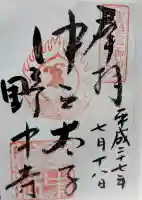 奉拝
平成二十七年
七月十八日
中之太子
野中寺